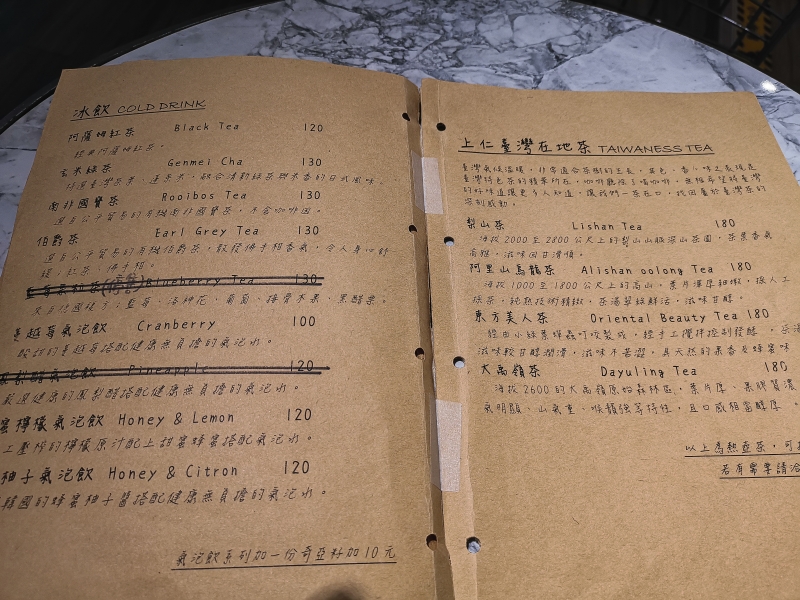 冰飲 COLD DRINK
阿薩姆紅茶 Black Tea 120
經典阿薩姆紅茶。
玄米綠茶 Genmei Cha 130
特選臺灣茶葉、蓬萊米，融合清新綠茶與米香的日式風味。
南非國寶茶 Rooibos Tea 130
選自公平貿易的有機南非國寶茶，不含咖啡因。
伯爵茶 Earl Grey Tea 130
選自公平貿易的有機伯爵茶，散發佛手柑香氣，令人身心舒
緩，紅茶、佛手柑。
Blueberry Tea 130
藍莓、洛神花、葡萄、接骨木果、黑醋栗。
蔓越莓氣泡飲 Cranberry 100
酸甜的蔓越莓搭配健康無負擔的氣泡水。
氣泡飲 Pineapple 120
嚴選健康的鳳梨醋搭配健康無負擔的氣泡水。
蜜檸檬氣泡飲 Honey & Lemon 120
工壓榨的檸檬原汁配上甜蜜蜂蜜搭配氣泡水。
柚子氣泡飲 Honey & Citron 120
韓國的蜂蜜柚子醬搭配健康無負擔的氣泡水。
氣泡飲系列加一份奇亞籽加10元
上仁臺灣在地茶 TAIWANESS TEA
臺灣氣候溫暖，非常適合茶樹的生長，其色、香、味之表現是
臺灣特色茶的精華所在，咖啡廳除了喝咖啡，
的好味道讓更多人知道，讓我們一茶在口，找回屬於臺灣茶的
深刻感動。
梨山茶 Lishan Tea 180
海拔2000至2800公尺上的梨山山脈深山茶園，茶葉香氣
高雅，滋味回甘滑順。
阿里山烏龍茶 Alishan oolong Tea 180
海拔1000至1800公尺上的高山，葉片渾厚細嫩，採人工
採茶，純熟技術精緻，茶湯翠綠鮮活，滋味甘醇。
東方美人茶 Oriental Beauty Tea 180
經由小綠葉蟬蟲叮咬製成，經手工攪拌控制發酵，茶湯
滋味較甘醇潤滑，滋味不苦澀，具天然的果香及蜂蜜味
大禹嶺茶 Dayuling Tea 180
海拔2600的大禹嶺原始森林區，葉片厚、果膠質濃
氣明顯、山氣重、喉韻強等特性，且口感相當醇厚。
以上為熱壺茶，可
若有需要請洽